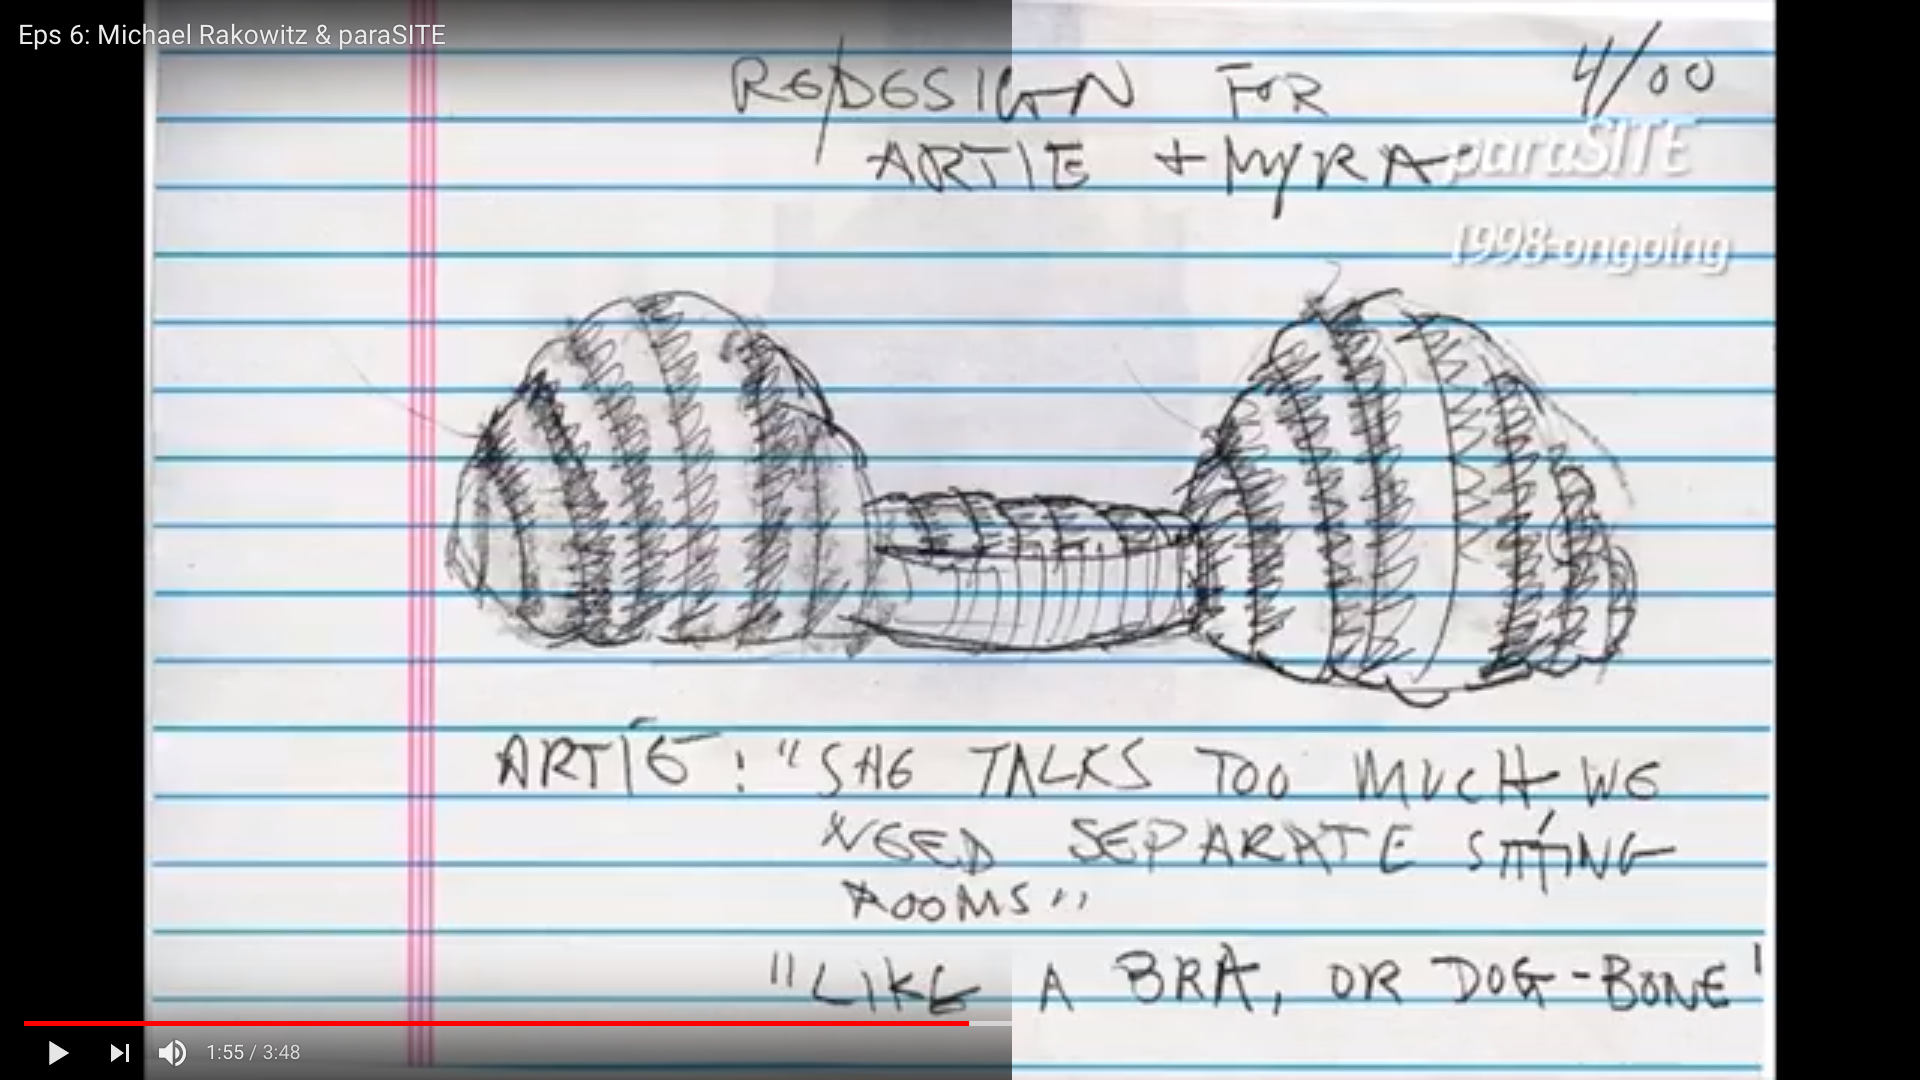 Eps 6: Michael Rakowitz & paraSITE
RE/DESIGN FOR 4/00
ARTIE + MYRA
paraSITE
1998-ongoing
ARTIE: "SHE TALKS TOO MUCH, WE
NEED SEPARATE SITTING
ROOMS"
"LIKE A BRA, OR DOG-BONE"
1:55 / 3:48